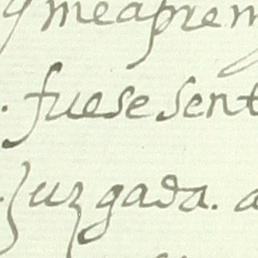 y me aprem
. fuese sent
. Juzgada. a